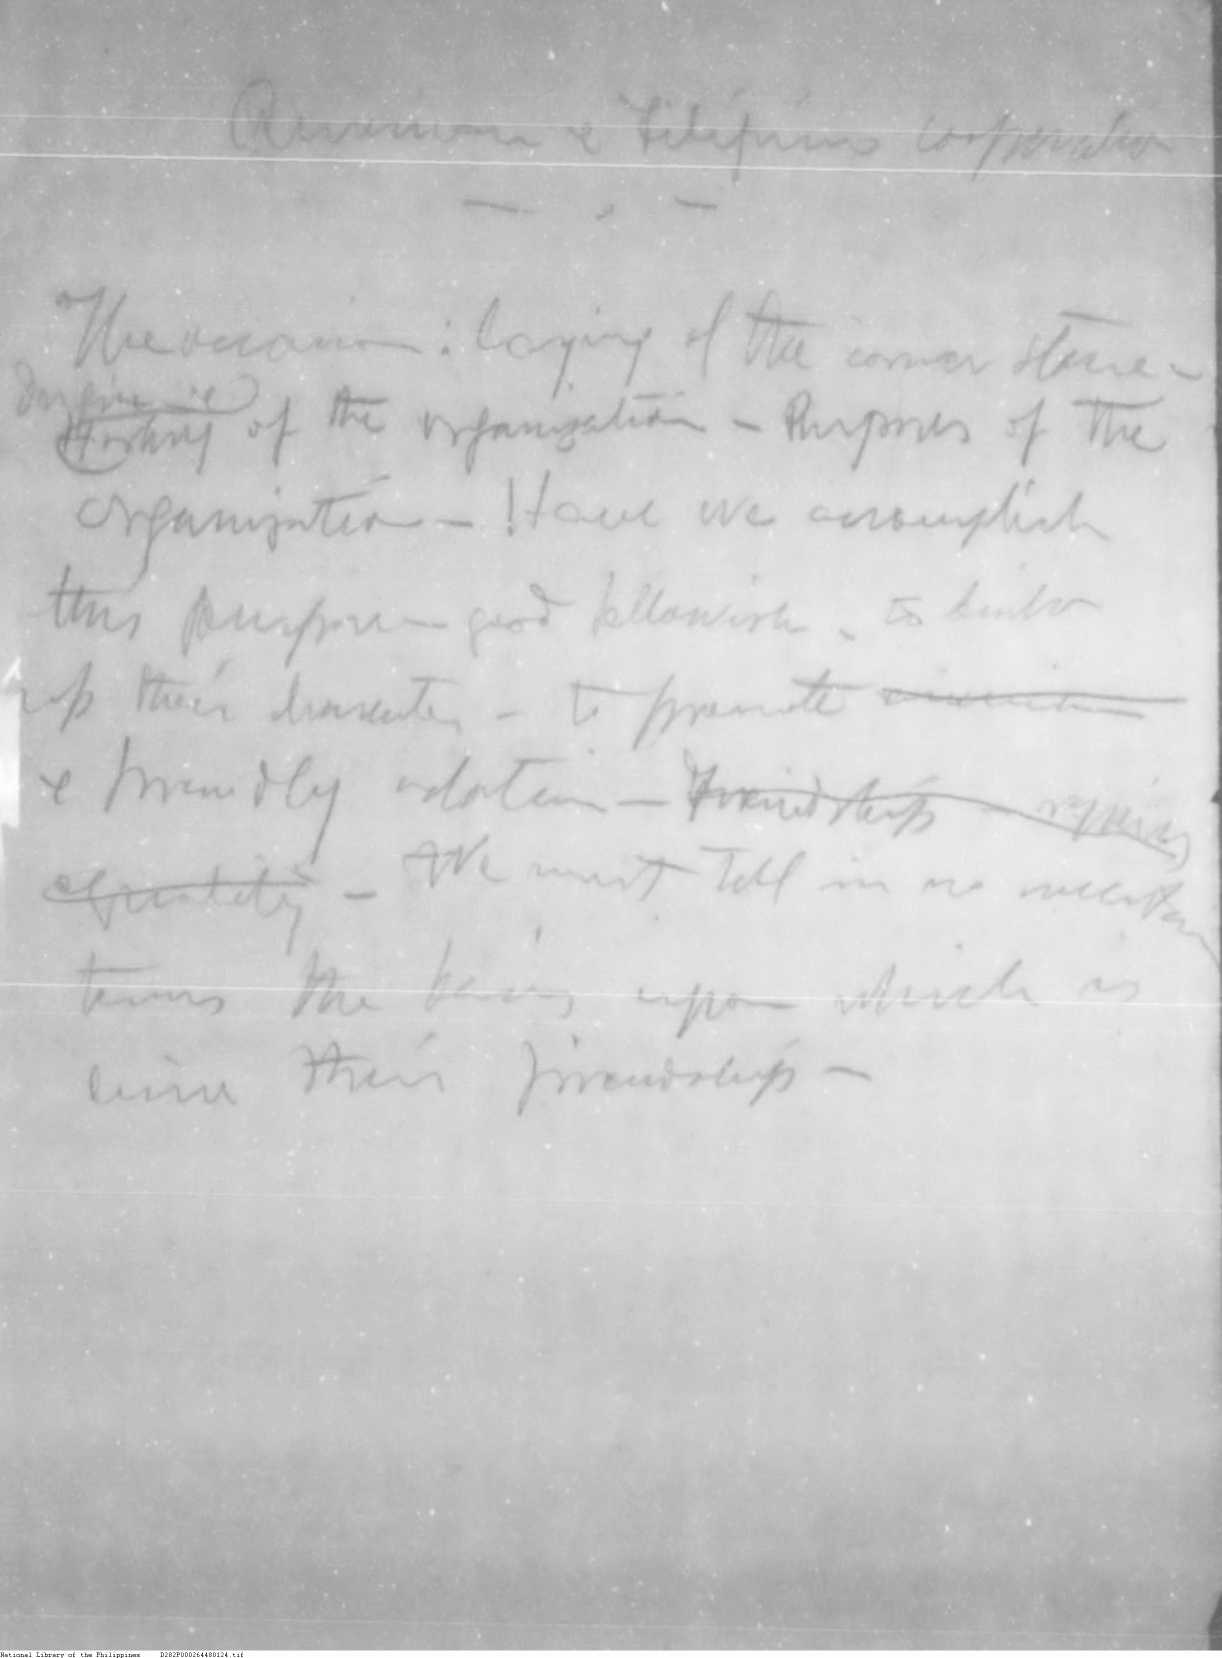 American & Filipino cooperation
— . —
The occasion : laying of the corner stone –
History of the organization – Purposes of the
organization – Have we accomplish
this purpose – good fellowish – to
up their character – to promote
& friendly relation – Friendship requires
equality – We must tell in no uncertain
terms the basis upon which is
their friendship –
National Library of the Philippines D282P000264480124.tif